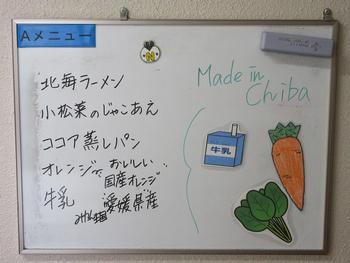 Aメニュー
北海ラーメン
小松菜のじゃこあえ
ココア蒸しパン
オレンジで おいしい
国産オレンジ
牛乳 愛媛県産
Made in
Chiba
牛乳
N